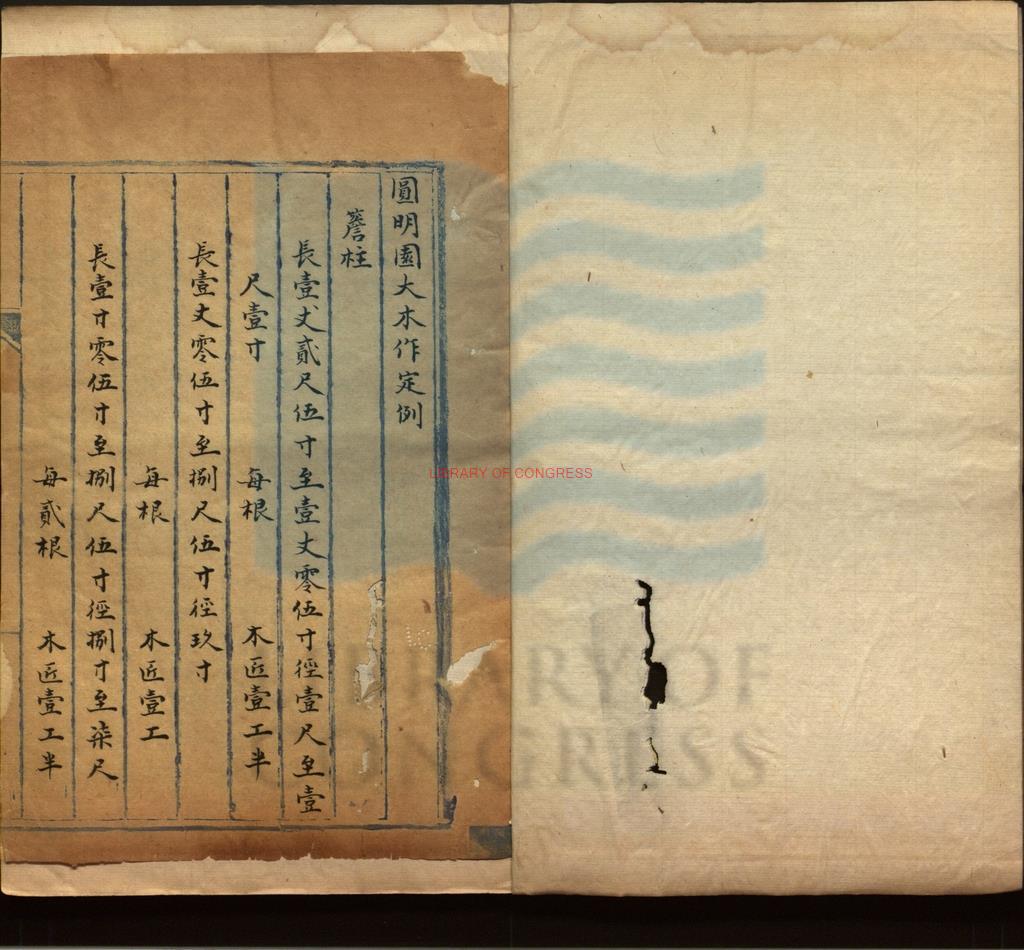 圓明園大木作定例
簷柱
長壹丈貳尺伍寸至壹丈零伍寸徑壹尺至壹
尺壹寸 每根 木匠壹工半
長壹丈零伍寸至捌尺伍寸徑玖寸
每根 木匠壹工
長壹寸零伍寸至捌尺伍寸徑捌寸至柒尺
每貳根 木匠壹工半
LIBRARY OF CONGRESS
LIBRARY OF
CONGRESS